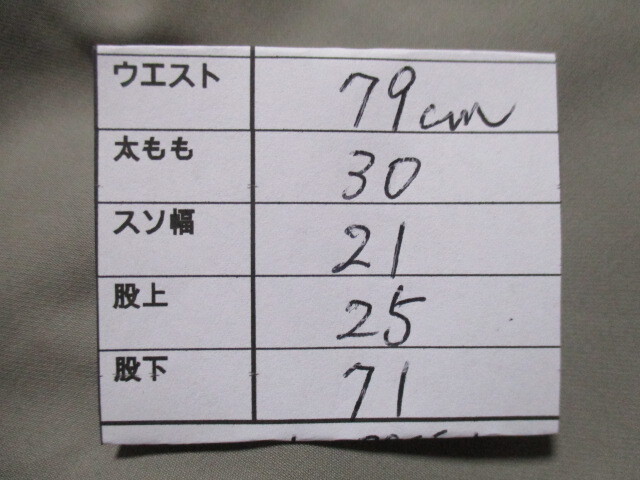 ウエスト 79cm
太もも 30
スソ幅 21
股上 25
股下 71